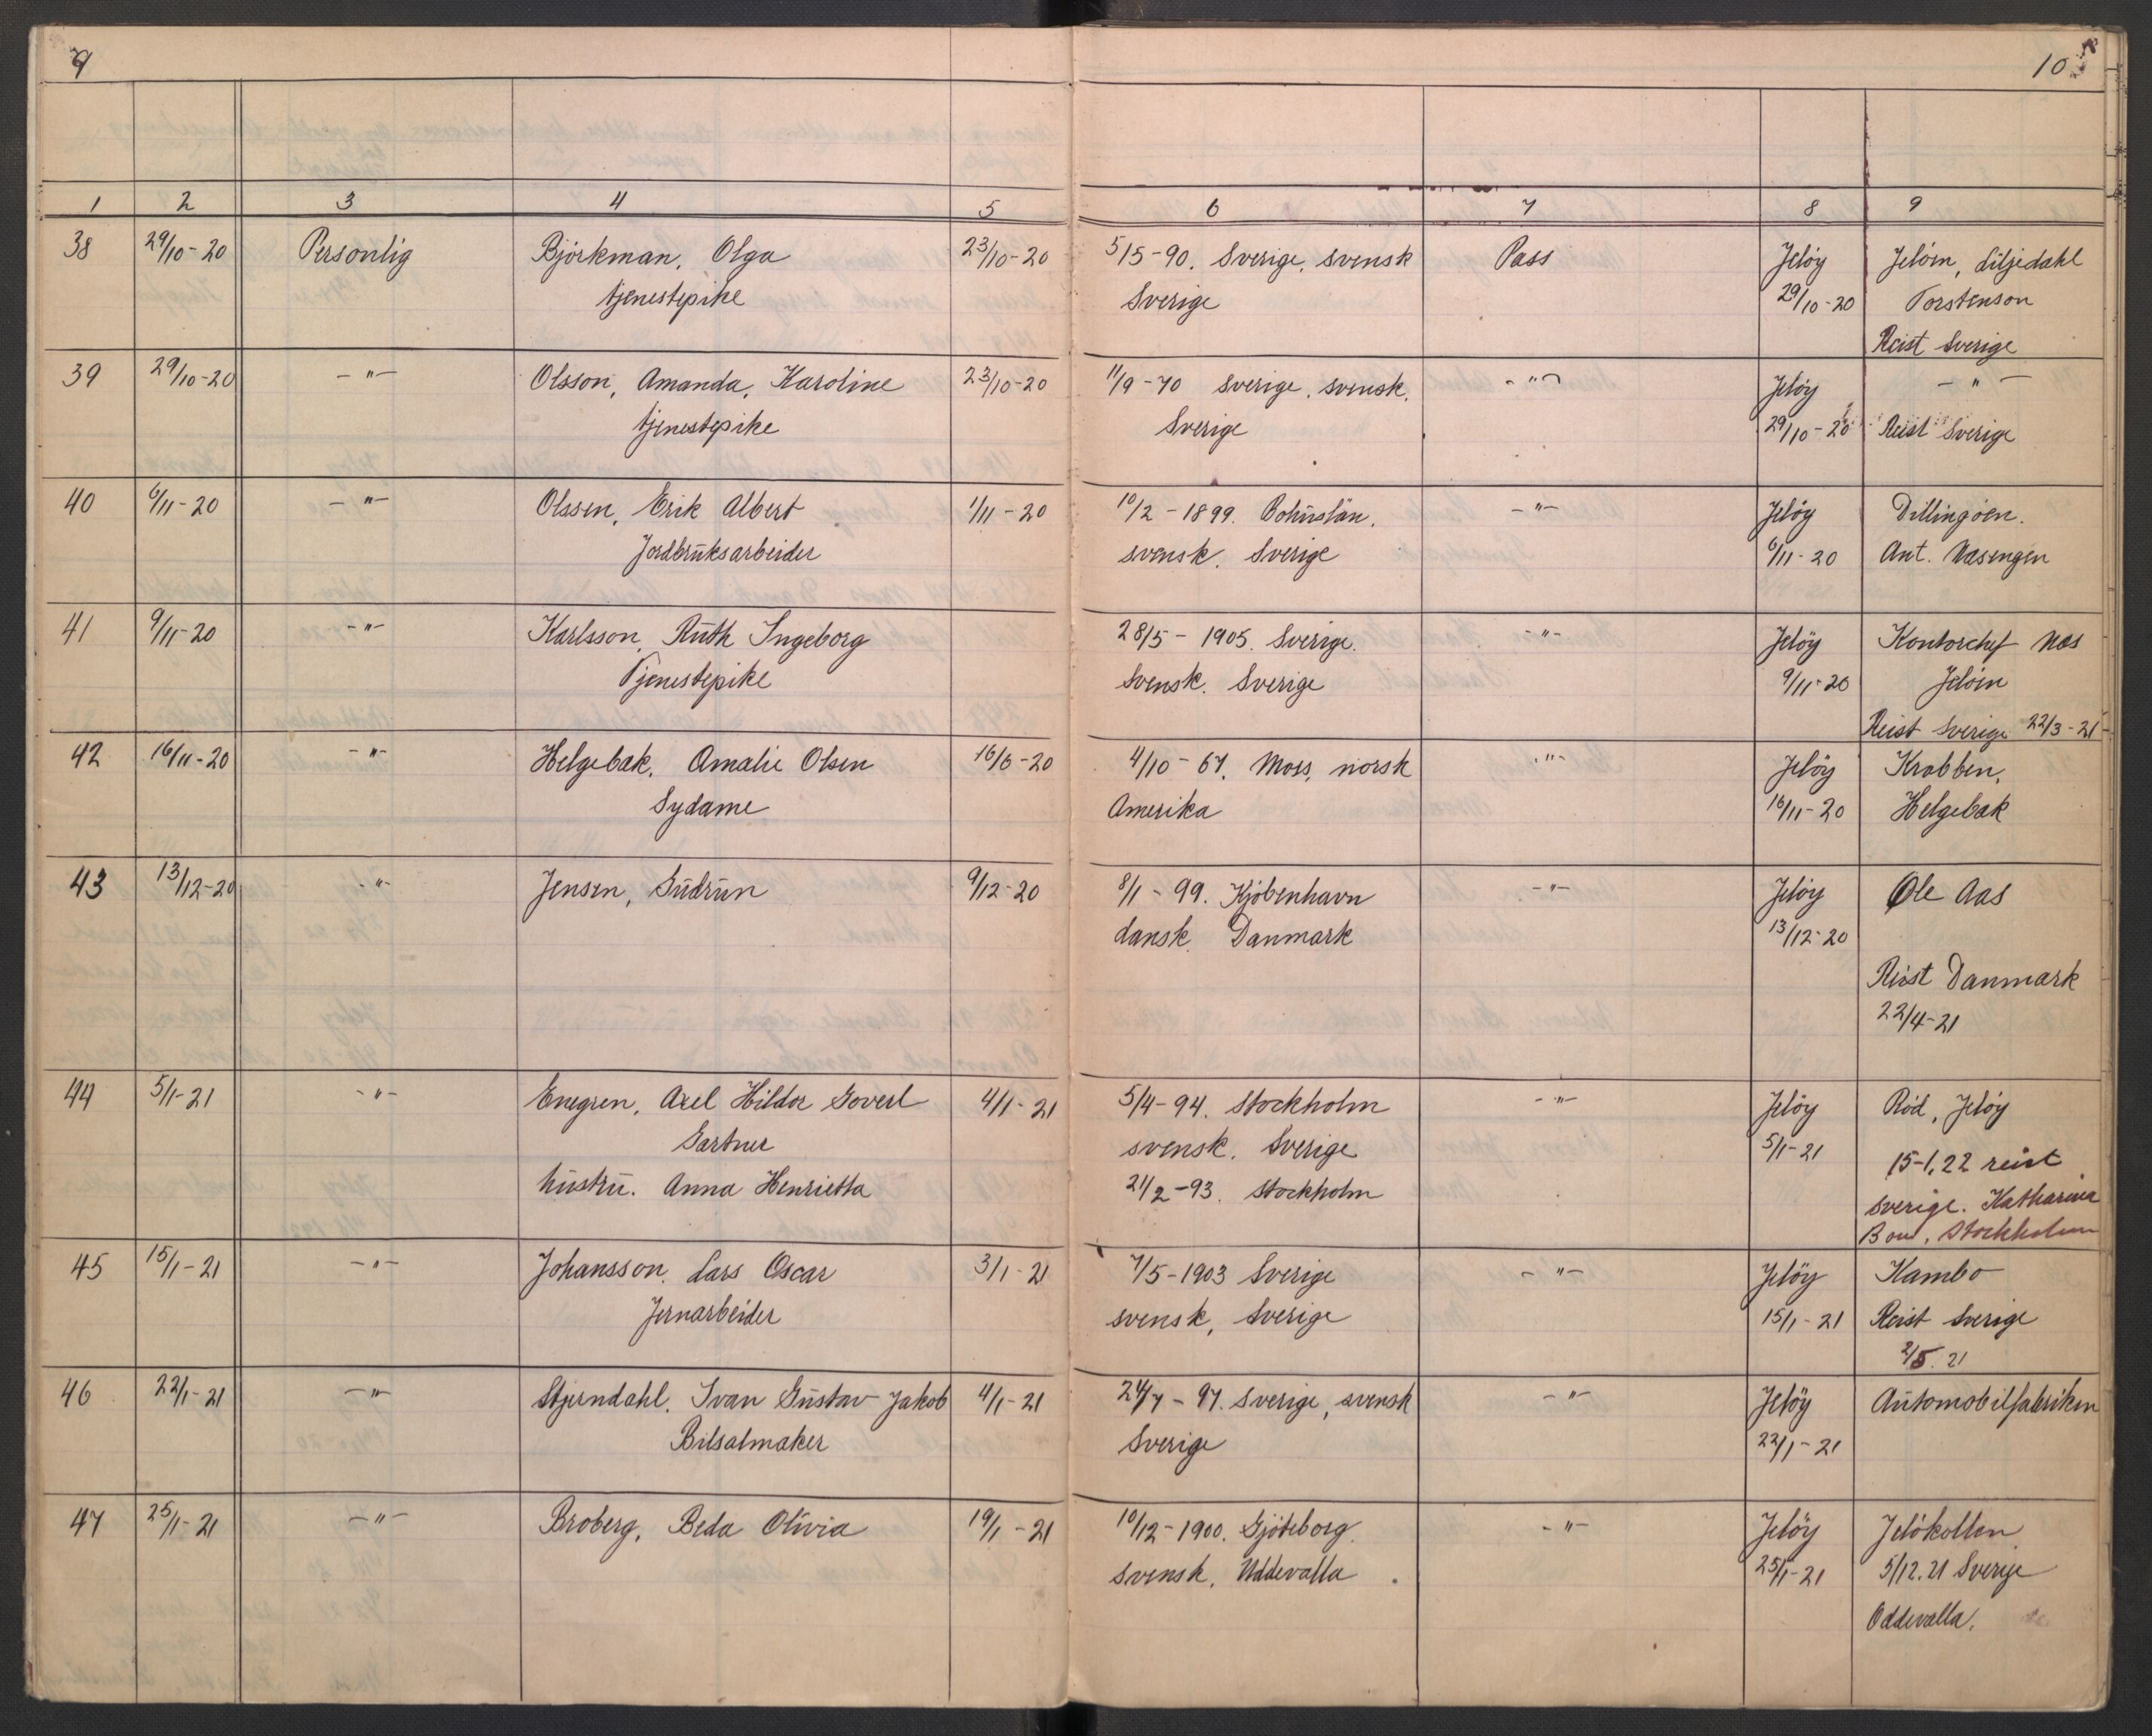 9
10
1 2 3 4 5 6 7 8 9
38 29/10-20 Personlig Björkman, Olga 23/10-20 5/5-90. Sverige. svensk Pass Jeløy Jeløen, Liljedahl
tjenestepike Sverige 29/10-20 Torstenson
Reist Sverige
39 29/10-20 -"- Olsson, Amanda, Karoline 23/10-20 11/9-70 Sverige. svensk. -"- Jeløy -"-
tjenestepike Sverige 29/10-20 Reist Sverige
40 6/11-20 -"- Olssen, Erik Albert 1/11-20 10/2-1899. Bohuslän. -"- Jeløy Dillingøen.
Jordbruksarbeider svensk. Sverige 6/11-20 Ant. Næsengen
41 9/11-20 -"- Karlsson, Ruth Ingeborg 28/5-1905. Sverige. -"- Jeløy Kontorchef Næs
Tjenestepike svensk. Sverige 9/11-20 Jeløen
Reist Sverige 22/3-21
42 16/11-20 -"- Helgebak, Amalie Olsen 16/6-20 4/10-67. Moss, norsk -"- Jeløy Krabben,
Sydame Amerika 16/11-20 Helgebak
43 13/12-20 -"- Jensen, Gudrun 9/12-20 8/1-99. Kjøbenhavn -"- Jeløy Ole Aas
dansk. Danmark 13/12-20
Reist Danmark
22/4-21
44 5/1-21 -"- Enegren, Axel Hildor 4/1-21 5/4-94. Stockholm -"- Jeløy Rød, Jeløy
Gartner svensk. Sverige 5/1-21 15-1.22 reist
hustru. Anna Henrietta 21/2-93. Stockholm Sverige. Katharina
Stockholm
45 15/1-21 -"- Johansson, Lars Oscar 3/1-21 7/5-1903 Sverige -"- Jeløy Kambo
Jernarbeider svensk, Sverige 15/1-21 Reist Sverige
2/5.21
46 22/1-21 -"- Stjerndahl, Ivan Gustav Jakob 4/1-21 24/7-97. Sverige, svensk -"- Jeløy Automobilfabriken
Bilsalmaker Sverige 22/1-21
47 25/1-21 -"- Broberg, Beda Olivia 19/1-21 10/12-1900. Gjöteborg. -"- Jeløy Jeløkollen
svensk, Uddevalla. 25/1-21 5/12.21 Sverige
Oddevalla.